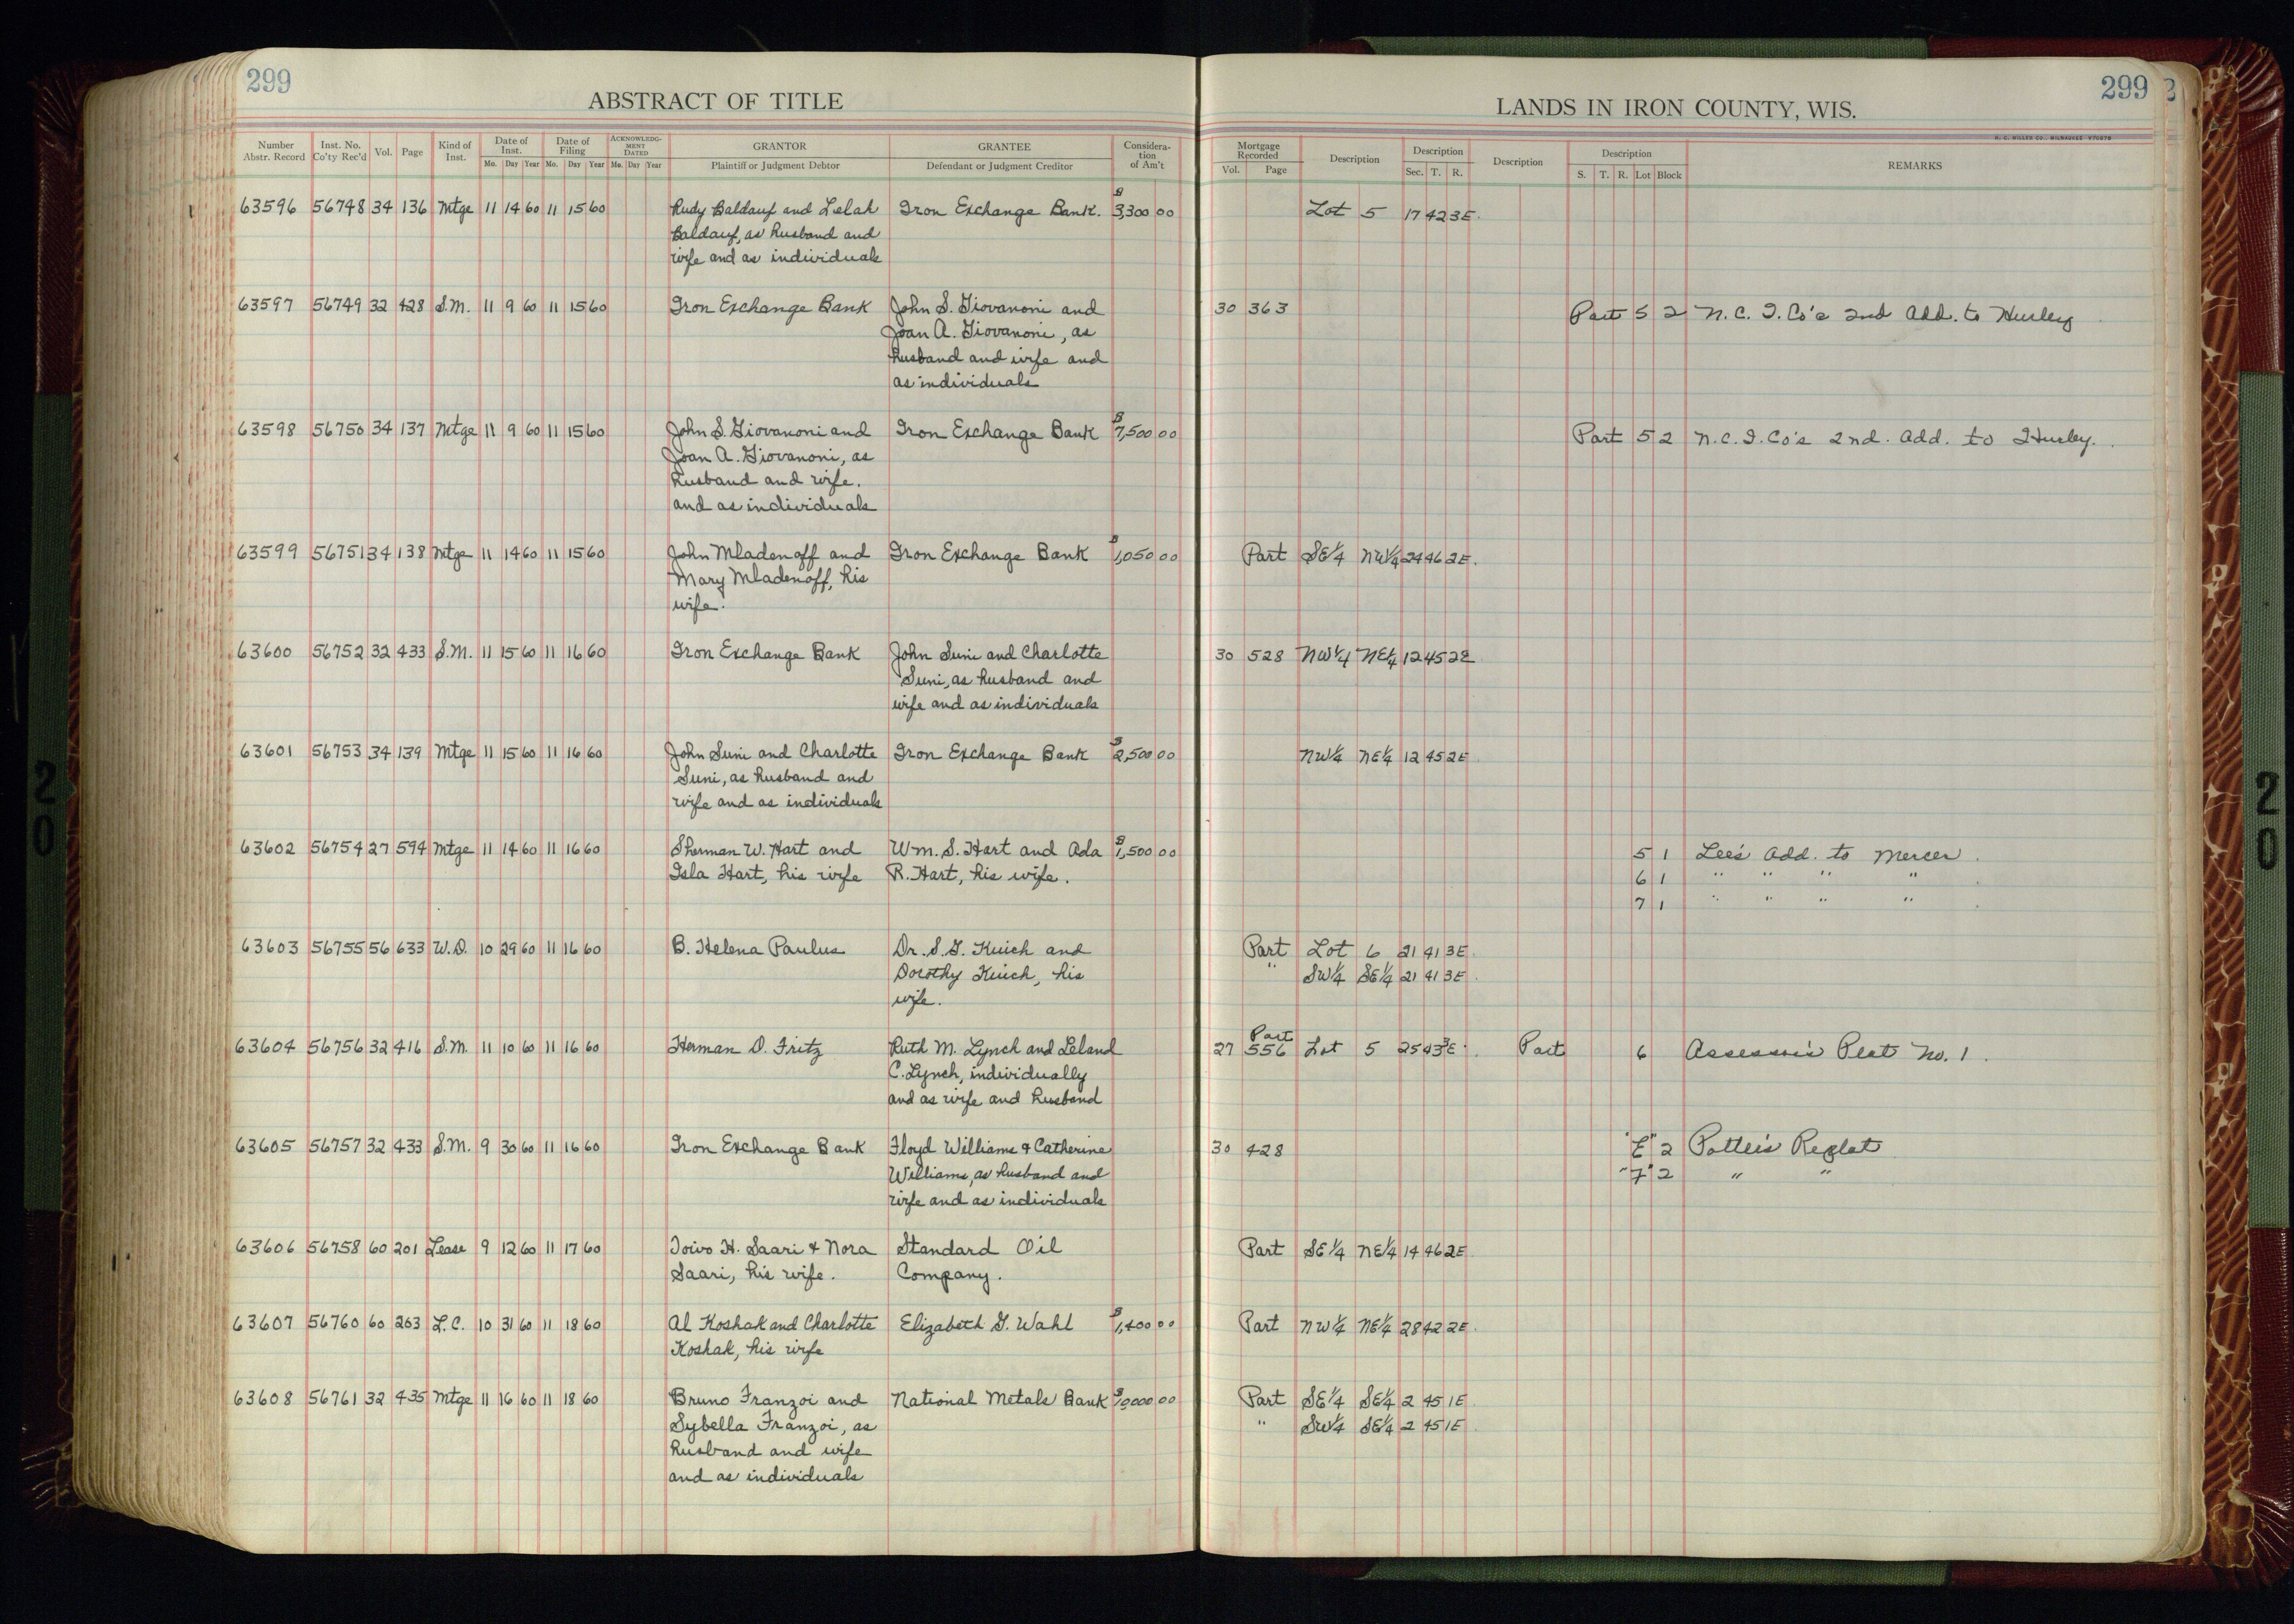 299
ABSTRACT OF TITLE
Number Abstr. Record Inst. No. Co'ty Rec'd Vol. Page Kind of Inst. Date of Inst. Mo. Day Year Date of Filing Mo. Day Year ACKNOWLEDGMENT DATED Mo. Day Year GRANTOR Plaintiff or Judgment Debtor GRANTEE Defendant or Judgment Creditor Consideration of Am't
63596 56748 34 136 Mtge 11 14 60 11 15 60 Rudy Baldauf and Lelah Iron Exchange Bank. $3,300 00
Baldauf, as husband and
wife and as individuals
63597 56749 32 428 S.M. 11 9 60 11 15 60 Iron Exchange Bank John S. Giovanoni and
Joan A. Giovanoni, as
husband and wife and
as individuals
63598 56750 34 137 Mtge 11 9 60 11 15 60 John S. Giovanoni and Iron Exchange Bank $7,500 00
Joan A. Giovanoni, as
husband and wife.
and as individuals
63599 56751 34 138 Mtge 11 14 60 11 15 60 John Mladenoff and Iron Exchange Bank $1,050 00
Mary Mladenoff, his
wife.
63600 56752 32 433 S.M. 11 15 60 11 16 60 Iron Exchange Bank John Suni and Charlotte
Suni, as husband and
wife and as individuals
63601 56753 34 139 Mtge 11 15 60 11 16 60 John Suni and Charlotte Iron Exchange Bank $2,500 00
Suni, as husband and
wife and as individuals
63602 56754 27 594 Mtge 11 14 60 11 16 60 Sherman W. Hart and Wm. S. Hart and Ada $1,500 00
Isla Hart, his wife R. Hart, his wife.
63603 56755 56 633 W.D. 10 29 60 11 16 60 B. Helena Paulus Dr. S. G. Kuich and
Dorothy Kuich, his
wife.
63604 56756 32 416 S.M. 11 10 60 11 16 60 Herman D. Fritz Ruth M. Lynch and Leland
C. Lynch, individually
and as wife and husband
63605 56757 32 433 S.M. 9 30 60 11 16 60 Iron Exchange Bank Floyd Williams & Catherine
Williams, as husband and
wife and as individuals
63606 56758 60 201 Lease 9 12 60 11 17 60 Toivo H. Saari & Nora Standard Oil
Saari, his wife. Company.
63607 56760 60 203 L.C. 10 31 60 11 18 60 Al Koshak and Charlotte Elizabeth G. Wahl $1,400 00
Koshak, his wife
63608 56761 32 435 Mtge 11 16 60 11 18 60 Bruno Franzoi and National Metals Bank $10,000 00
Sybella Franzoi, as
husband and wife
and as individuals
299
LANDS IN IRON COUNTY, WIS.
H. C. MILLER CO., MILWAUKEE
Mortgage Recorded Vol. Page Description Description Sec. T. R. Description Description S. T. R. Lot Block REMARKS
Lot 5 17 42 3E.
30 363 Part 5 2 N.C.I.Co's 2nd Add. to Hurley
Part 5 2 N.C.I.Co's 2nd. Add. to Hurley.
Part SE¼ NW¼ 24 46 2E.
30 528 NW¼ NE¼ 12 45 2E
NW¼ NE¼ 12 45 2E
5 1 Lee's Add. to Mercer.
6 1 " " " "
7 1 " " " "
Part Lot 6 21 41 3E.
" SW¼ SE¼ 21 41 3E.
Part
27 556 Lot 5 25 43 3E. Part 6 Assessor's Plat No. 1.
30 428 "E" 2 Pattee's Replat
"F" 2 " "
Part SE¼ NE¼ 14 46 2E
Part NW¼ NE¼ 28 42 2E.
Part SE¼ SE¼ 2 45 1E
" SW¼ SE¼ 2 45 1E
20
20